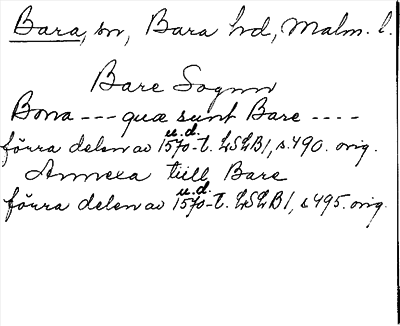 Bara, sn, Bara hd, Malm. l.
Bare Sognn
Bona --- quæ sunt Bare ----
u.d.
förra delen av 1570-t. LSLB1, s. 490. orig.
Annexa tiill Bare
u.d.
förra delen av 1570-t. LSLB1, s. 495. orig.